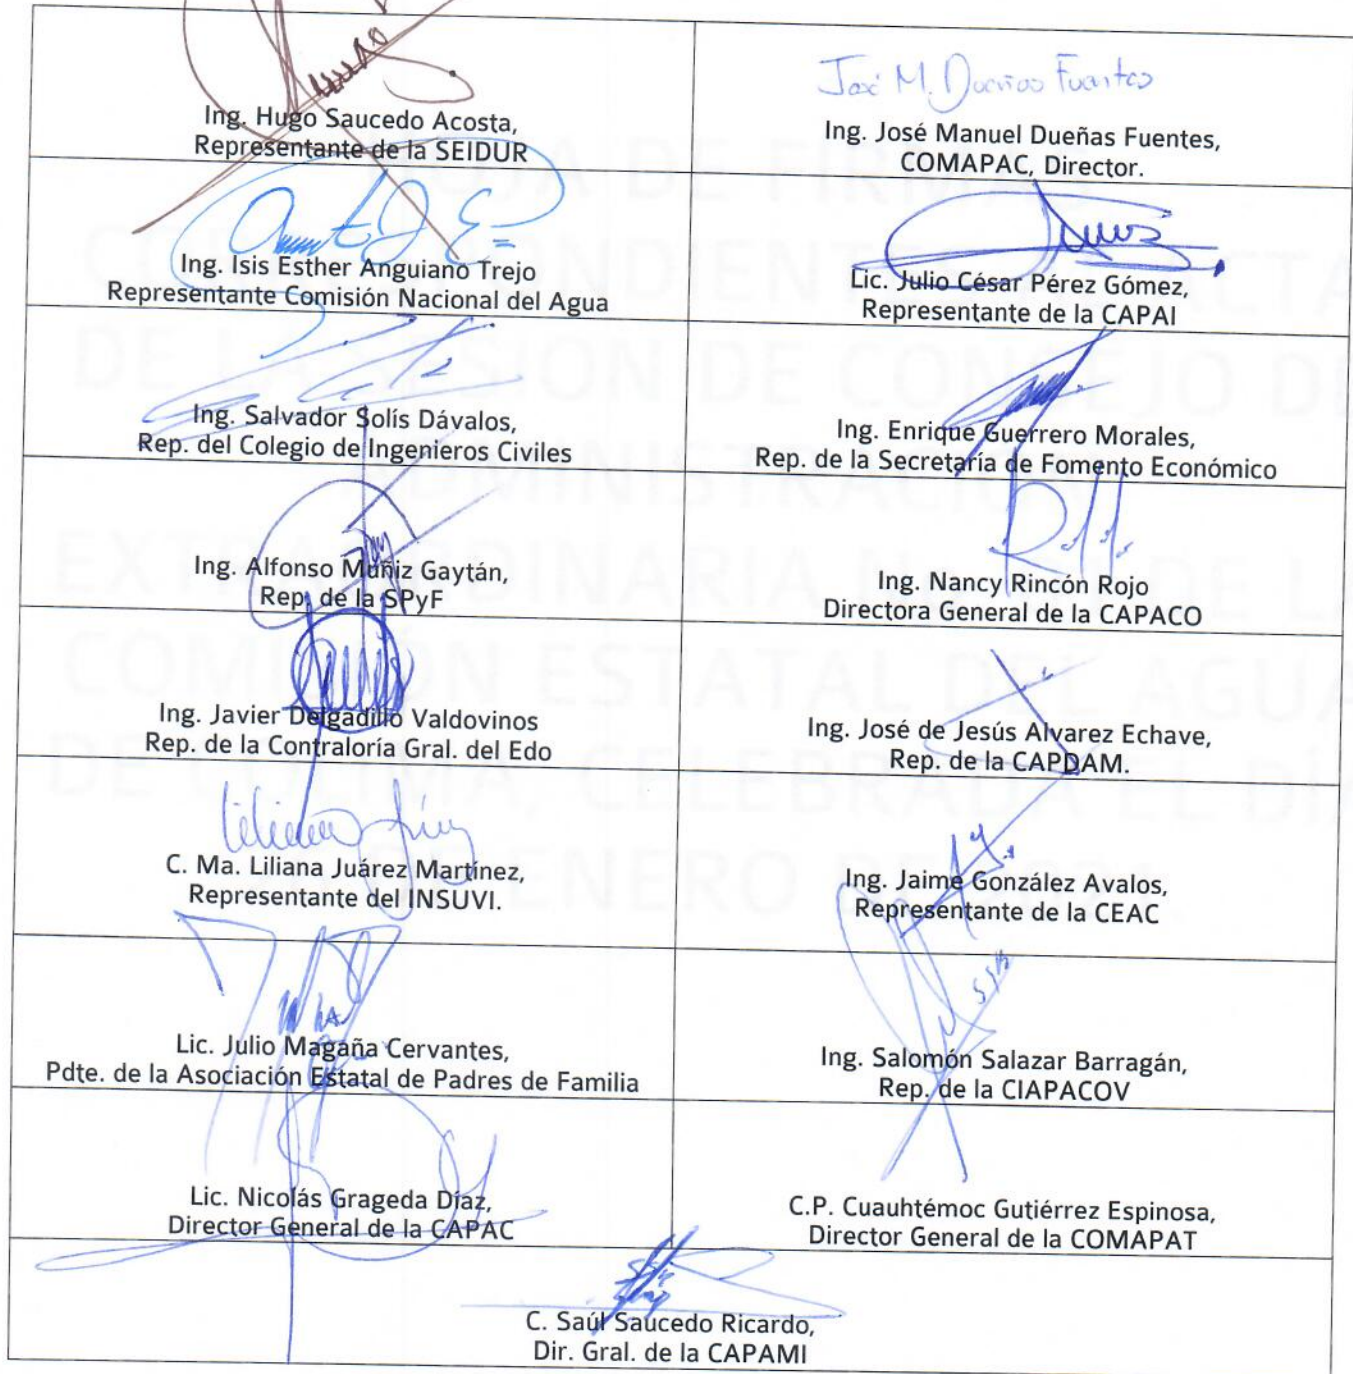 José M. Dueñas Fuentes
Ing. Hugo Saucedo Acosta,
Representante de la SEIDUR
Ing. José Manuel Dueñas Fuentes,
COMAPAC, Director.
Ing. Isis Esther Anguiano Trejo
Representante Comisión Nacional del Agua
Lic. Julio César Pérez Gómez,
Representante de la CAPAI
Ing. Salvador Solís Dávalos,
Rep. del Colegio de Ingenieros Civiles
Ing. Enrique Guerrero Morales,
Rep. de la Secretaría de Fomento Económico
Ing. Alfonso Muñiz Gaytán,
Rep. de la SPyF
Ing. Nancy Rincón Rojo
Directora General de la CAPACO
Ing. Javier Delgadillo Valdovinos
Rep. de la Contraloría Gral. del Edo
Ing. José de Jesús Alvarez Echave,
Rep. de la CAPDAM.
C. Ma. Liliana Juárez Martínez,
Representante del INSUVI.
Ing. Jaime González Avalos,
Representante de la CEAC
Lic. Julio Magaña Cervantes,
Pdte. de la Asociación Estatal de Padres de Familia
Ing. Salomón Salazar Barragán,
Rep. de la CIAPACOV
Lic. Nicolás Grageda Díaz,
Director General de la CAPAC
C.P. Cuauhtémoc Gutiérrez Espinosa,
Director General de la COMAPAT
C. Saúl Saucedo Ricardo,
Dir. Gral. de la CAPAMI